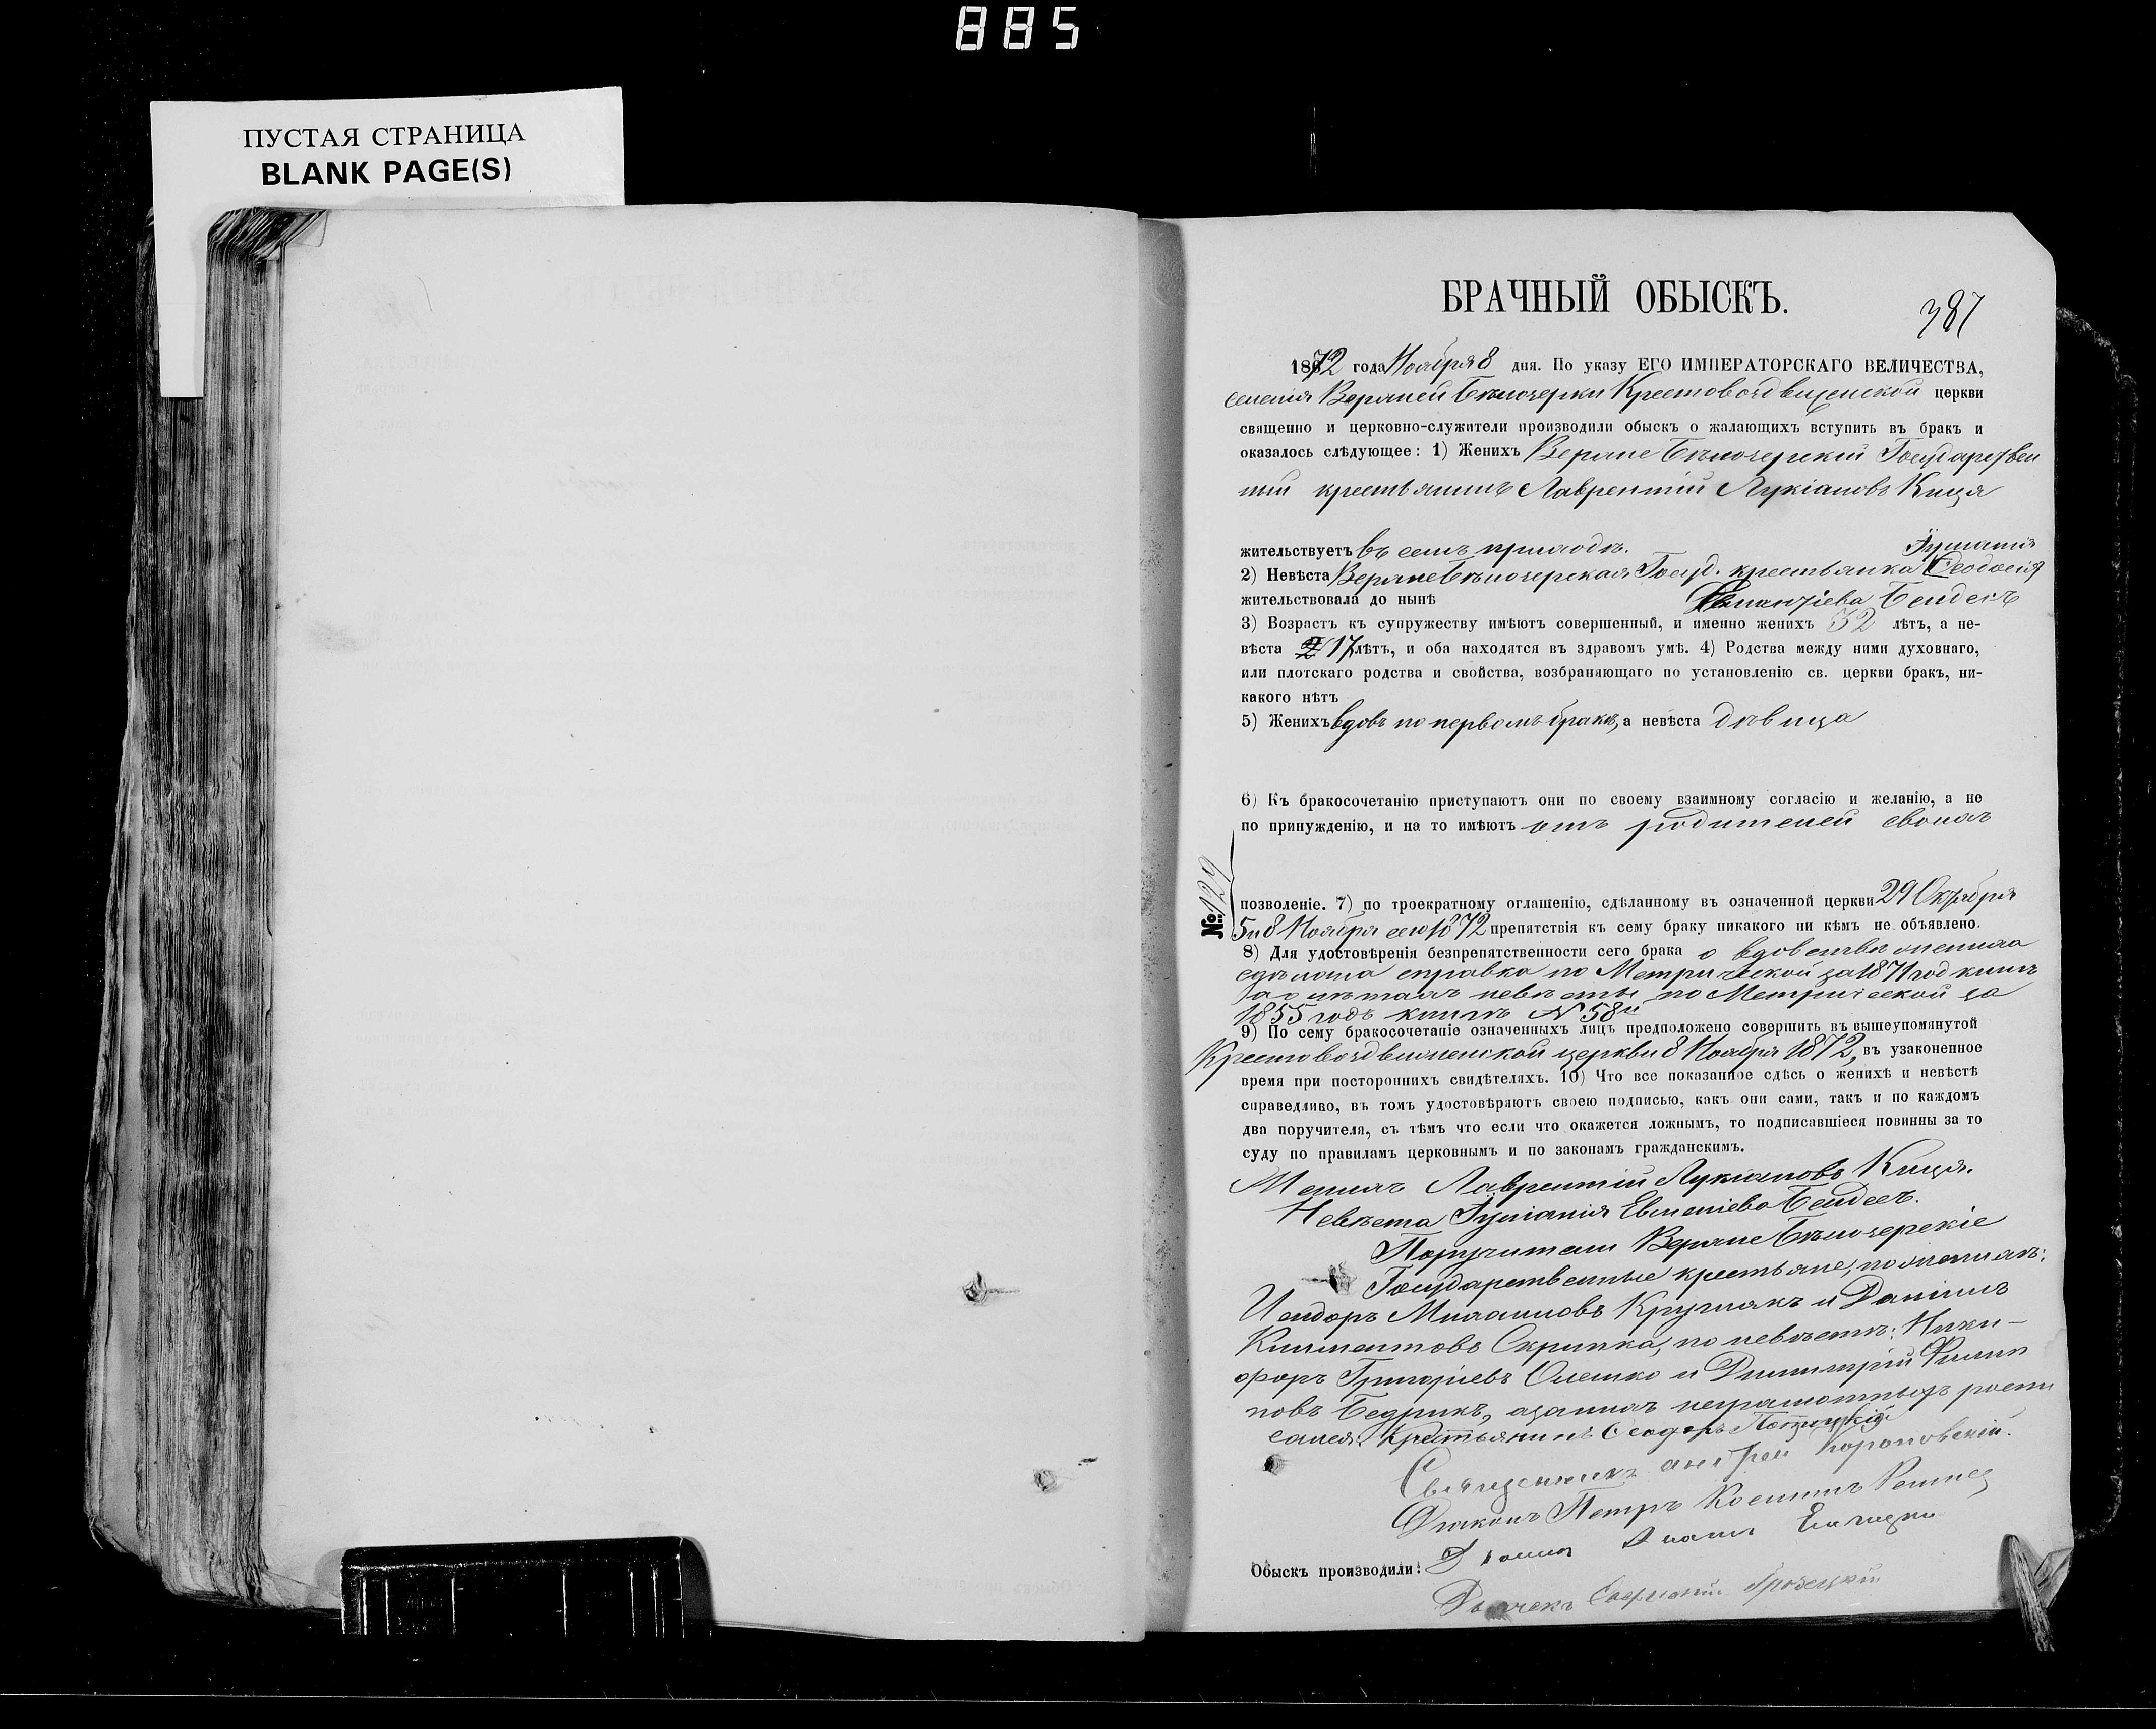 885
ПУСТАЯ СТРАНИЦА
BLANK PAGE(S)
БРАЧНЫЙ ОБЫСКЪ.
387
1872 года Ноября 8 дня. По указу ЕГО ИМПЕРАТОРСКАГО ВЕЛИЧЕСТВА,
селенія Верхней Бѣлозерки Крестовоздвиженской церкви
священно и церковно-служители производили обыскъ о жалающихъ вступить въ бракъ и
оказалось слѣдующее: 1) Женихъ Верхне Бѣлозерскій Государствен
ный крестьянинъ Лаврентій Лукіановъ Кица
жительствуетъ въ семъ приходѣ. Іуліанія
2) Невѣста Верхне Бѣлозерская Госуд. крестьянка Ѳеодосія
жительствовала до нынѣ Бендесъ
3) Возрастъ къ супружеству имѣютъ совершенный, и именно женихъ 32 лѣтъ, а не-
вѣста 17 лѣтъ, и оба находятся въ здравомъ умѣ. 4) Родства между ними духовнаго,
или плотскаго родства и свойства, возбраняющаго по установленію св. церкви бракъ, ни-
какого нѣтъ
5) Женихъ вдовъ по первомъ бракѣ, а невѣста дѣвица
6) Къ бракосочетанію приступаютъ они по своему взаимному согласію и желанію, а не
по принужденію, и на то имѣютъ отъ родителей своихъ
№ 129
позволеніе. 7) по троекратному оглашенію, сдѣланному въ означенной церкви 29 Октября
5 и 8 Ноября сего 1872 препятствія къ сему браку никакого ни кѣмъ не объявлено.
8) Для удостовѣренія безпрепятственности сего брака о вдовствѣ жениха
сдѣлана справка по Метрической за 1871 год книгѣ
а о лѣтахъ невѣсты по Метрической за
1855 годъ книгѣ N 58й
9) По сему бракосочетаніе означенныхъ лицъ предположено совершить въ вышеупомянутой
Крестовоздвиженской церкви 8 Ноября 1872, въ узаконенное
время при постороннихъ свидѣтеляхъ. 10) Что все показанное сдѣсь о женихѣ и невѣстѣ
справедливо, въ томъ удостовѣряютъ своею подписью, какъ они сами, такъ и по каждомъ
два поручителя, съ тѣмъ что если что окажется ложнымъ, то подписавшіеся повинны за то
суду по правиламъ церковнымъ и по законамъ гражданскимъ.
Женихъ Лаврентій Лукіановъ Кица.
Невѣста Іуліанія Евменіева Бендесъ.
Поручители Верхне Бѣлозерскіе
Государственные крестьяне, по женихѣ:
Исидоръ Михаиловъ Кругликъ и Даніилъ
Климентовъ Скрипка, по невѣстѣ: Ники-
форъ Григоріевъ Олешко и Димитрій Филип
повъ Бедрикъ, а за нихъ неграмотныхъ роспи
сался: Крестьянинъ Ѳеодоръ
Священникъ Андрей Короповскій.
Діаконъ Петръ
Обыскъ производили: